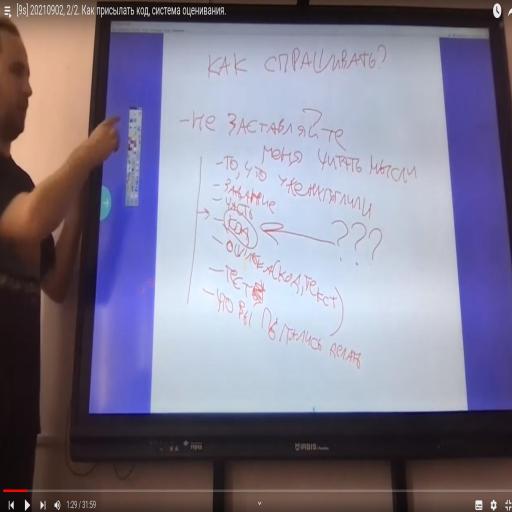 [9s] 20210902, 2/2. Как присылать код, система оценивания.
КАК СПРАШИВАТЬ?
- НЕ ЗАСТАВЛЯЙТЕ
МЕНЯ ЧИТАТЬ МЫСЛИ
- ТО, ЧТО УЖЕ
- ЗАДАНИЕ
- ЧАСТЬ
- КОД ???
- ОШИБКА (КОД, ТЕКСТ)
- ТЕСТ
- ЧТО ВЫ ПЫТАЛИСЬ ДЕЛАТЬ
IRBIS
1:29 / 31:59